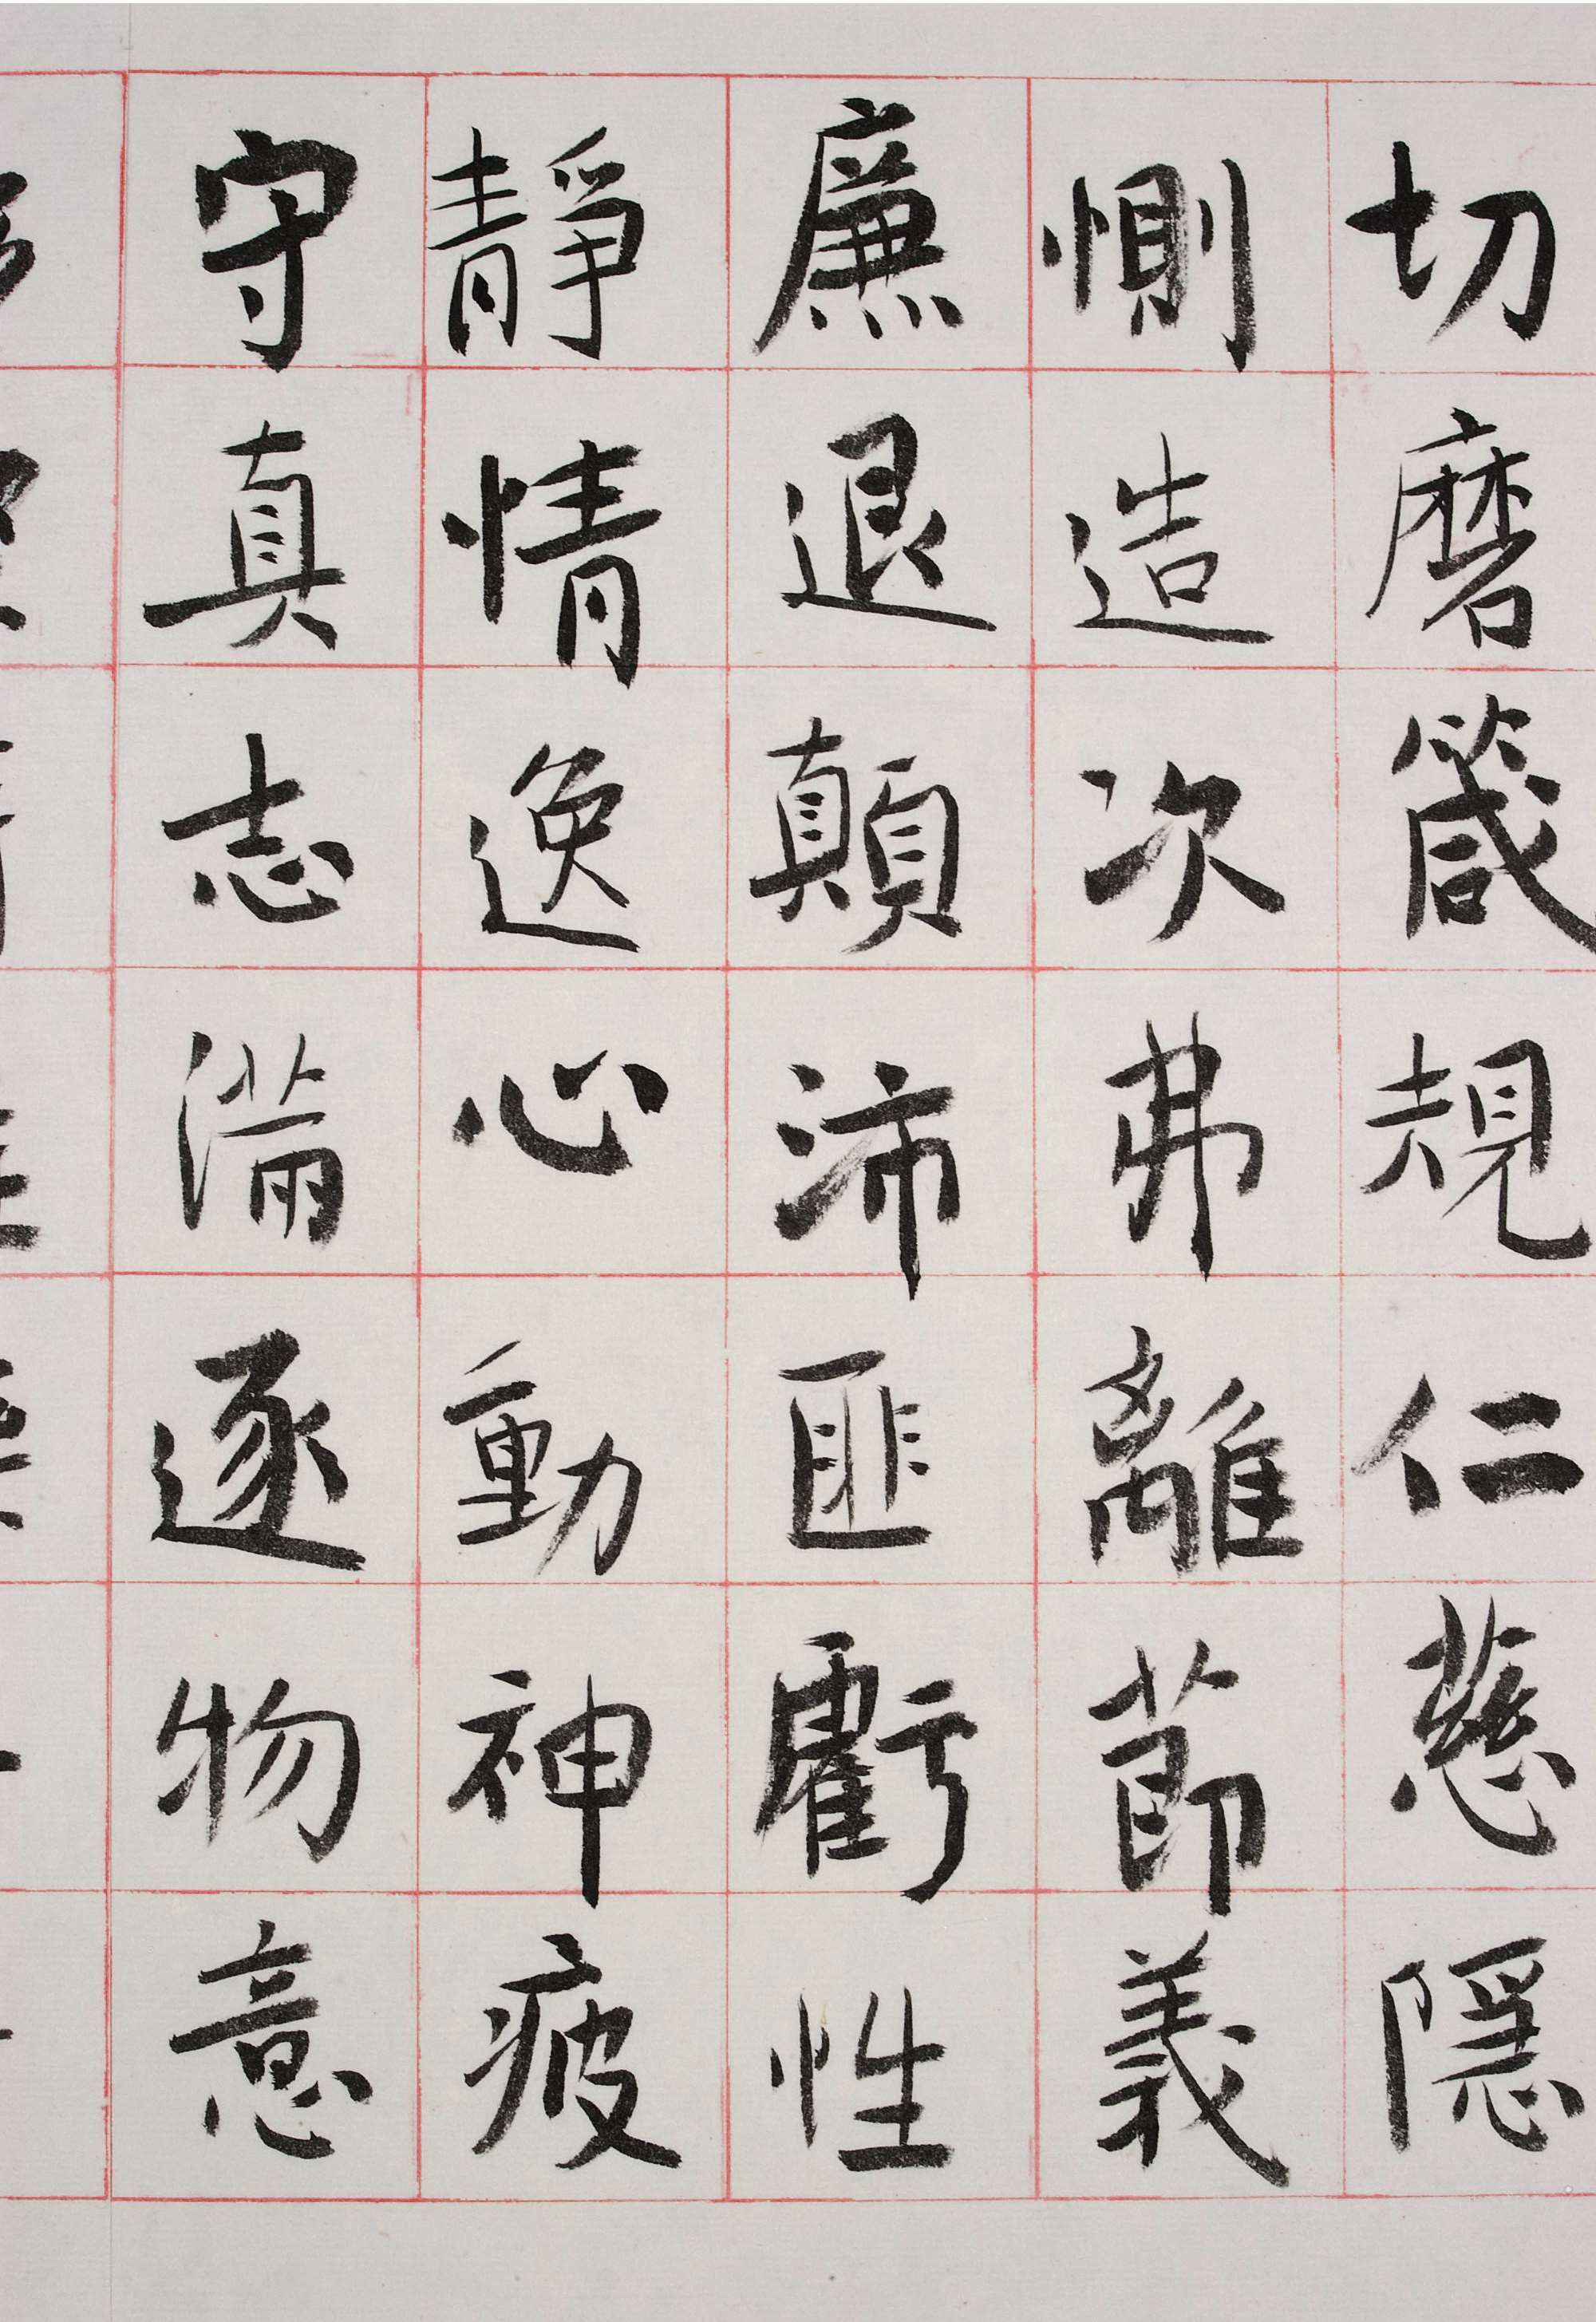 切磨箴規仁慈隱
惻造次弗離節義
廉退顛沛匪虧性
靜情逸心動神疲
守真志滿逐物意